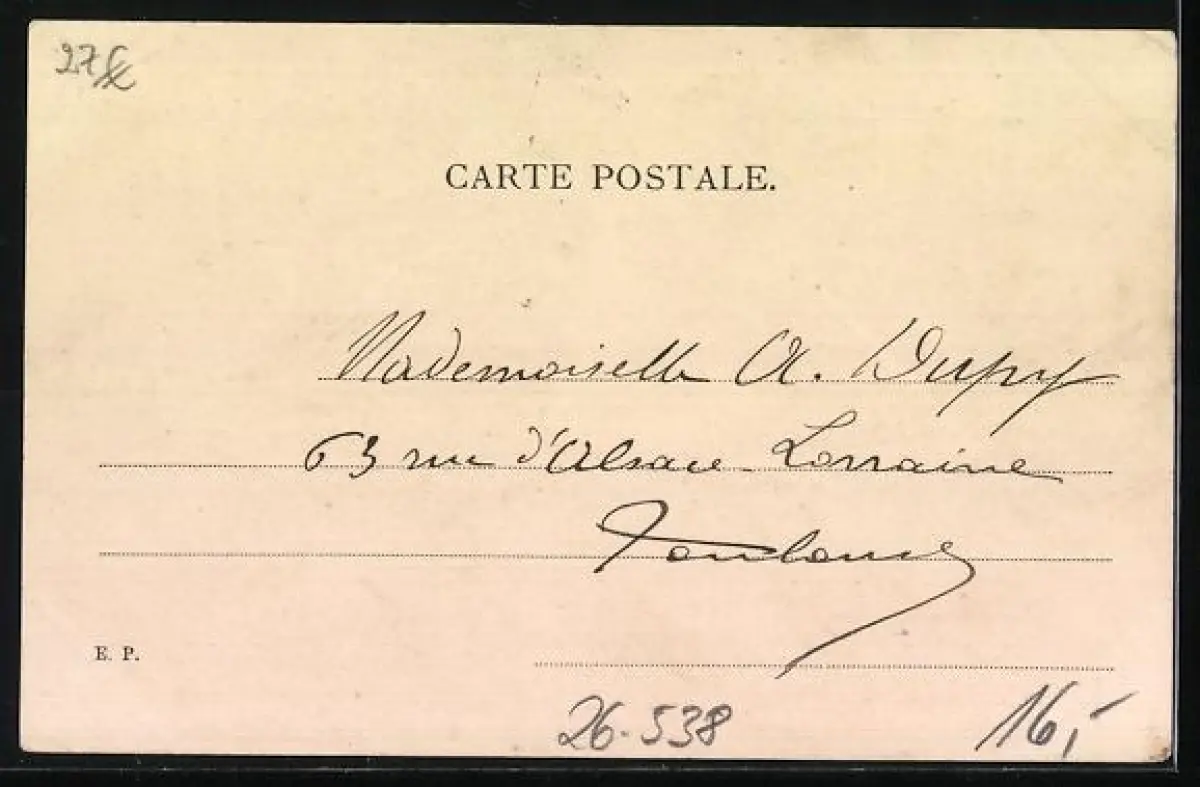 27
CARTE POSTALE.
Mademoiselle A. Dupy
63 rue d'Alsace-Lorraine
Toulouse
E. P.
26-538
16,-